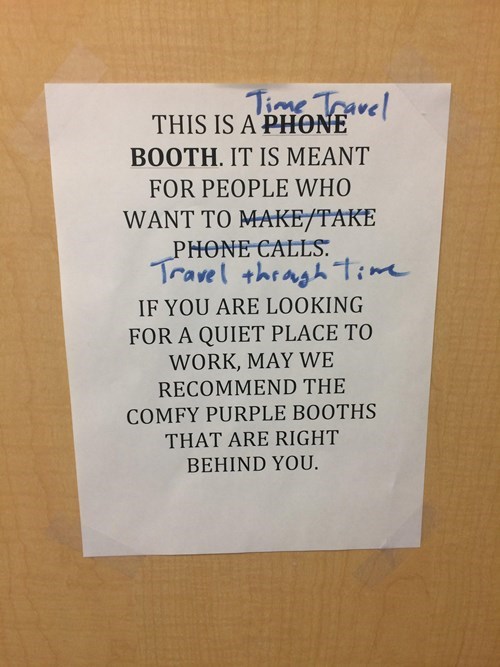 Time Travel
THIS IS A PHONE
BOOTH. IT IS MEANT
FOR PEOPLE WHO
WANT TO MAKE/TAKE
PHONE CALLS.
Travel through Time
IF YOU ARE LOOKING
FOR A QUIET PLACE TO
WORK, MAY WE
RECOMMEND THE
COMFY PURPLE BOOTHS
THAT ARE RIGHT
BEHIND YOU.